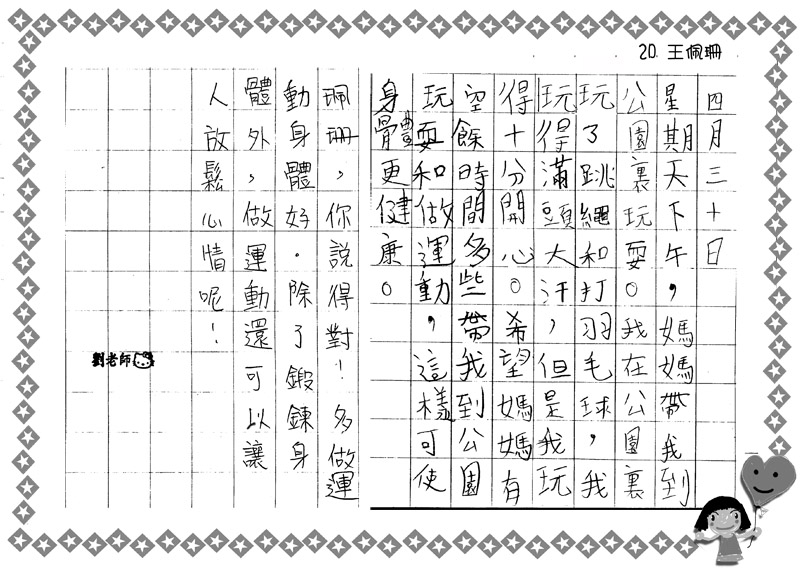 20. 王佩珊
四月三十日
星期天下午，媽媽帶我到
公園裏玩耍。我在公園裏
玩了跳繩和打羽毛球，我
玩得滿頭大汗，但是我玩
得十分開心。希望媽媽有
空餘時間多些帶我到公園
玩耍和做運動，這樣可使
身體更健康。
珮珊，你說得對！多做運
動身體好．除了鍛鍊身
體外，做運動還可以讓
人放鬆心情呢！
劉老師